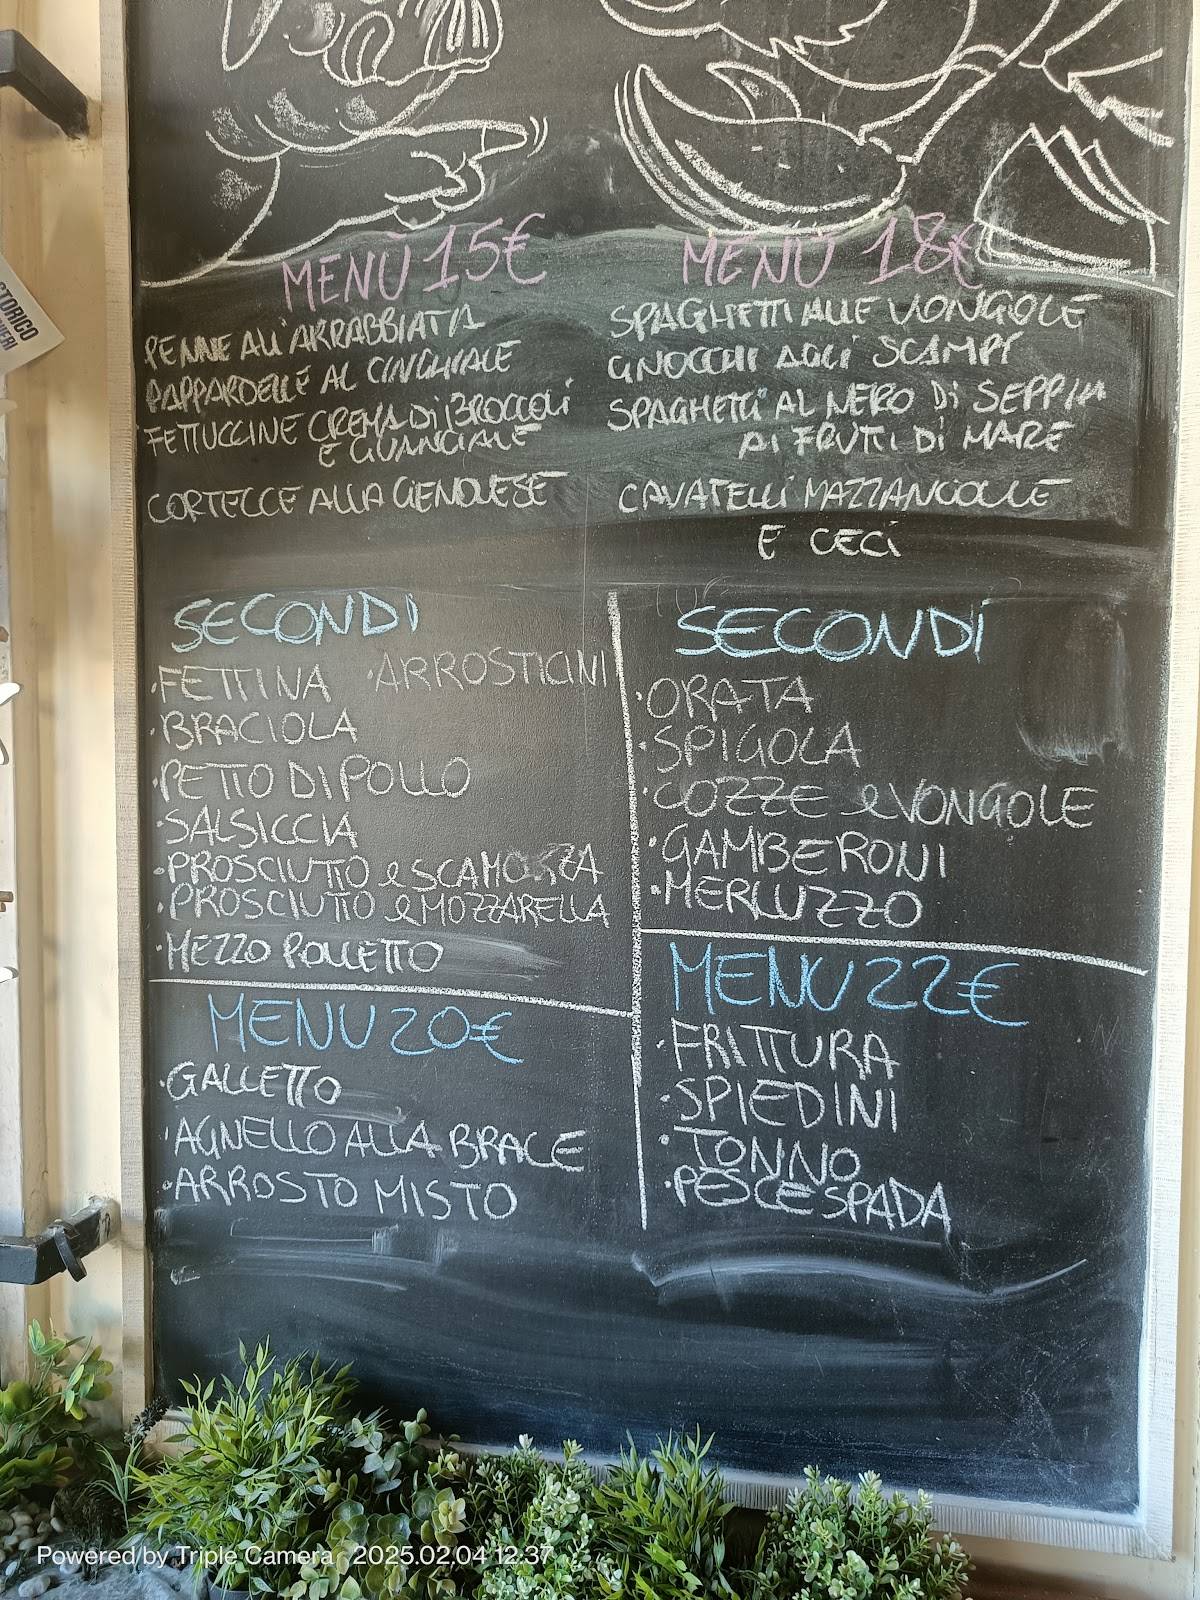 STORICO
MENÙ 15€
PENNE ALL'ARRABBIATA
PAPPARDELLE AL CINGHIALE
FETTUCCINE CREMA DI BROCCOLI
E GUANCIALE
CORTECCE ALLA GENOVESE
MENÙ 18€
SPAGHETTI ALLE VONGOLE
GNOCCHI AGLI SCAMPI
SPAGHETTI AL NERO DI SEPPIA
AI FRUTTI DI MARE
CAVATELLI MAZZANCOLLE
E CECI
SECONDI
·FETTINA ·ARROSTICINI
·BRACIOLA
·PETTO DI POLLO
·SALSICCIA
·PROSCIUTTO e SCAMORZA
·PROSCIUTTO e MOZZARELLA
·MEZZO POLLETTO
SECONDI
·ORATA
·SPIGOLA
·COZZE e VONGOLE
·GAMBERONI
·MERLUZZO
MENU 20€
·GALLETTO
·AGNELLO ALLA BRACE
·ARROSTO MISTO
MENU 22€
·FRITTURA
·SPIEDINI
·TONNO
·PESCE SPADA
Powered by Triple Camera 2025.02.04 12:37